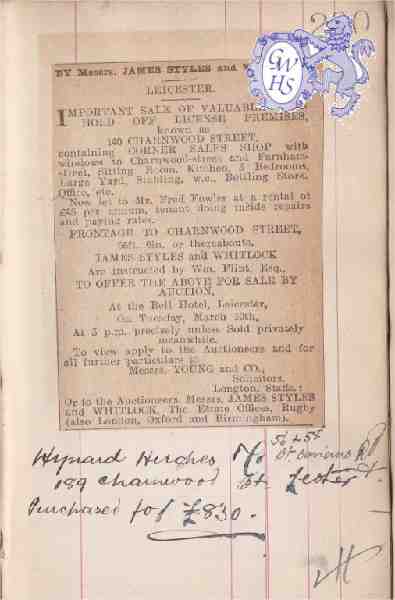 BY Messrs. JAMES STYLES and
LEICESTER.
IMPORTANT SALE OF VALUABLE
HOLD OFF LICENSE PREMISES,
known as
190 CHARNWOOD STREET,
containing CORNER SALES SHOP with
windows to Charnwood-street and Farnham-
street, Sitting Room, Kitchen, 3 Bedrooms,
Large Yard, Stabling, w.c., Bottling Store,
Office, etc.
Now let to Mr. Fred Fowles at a rental of
£45 per annum, tenant doing inside repairs
and paying rates.
FRONTAGE TO CHARNWOOD STREET,
6in. or thereabouts.
JAMES STYLES and WHITLOCK
Are instructed by Wm. Flint, Esq.,
TO OFFER THE ABOVE FOR SALE BY
AUCTION,
At the Bell Hotel, Leicester,
On Tuesday, March
At 5 p.m. precisely unless Sold privately
meanwhile.
To view apply to the Auctioneers and for
all further particulars to
Messrs. YOUNG and CO.,
Solicitors,
Longton, Staffs.;
Or to the Auctioneers, Messrs. JAMES STYLES
and WHITLOCK, The Estate Offices, Rugby
(also London, Oxford and Birmingham).
GWHS
Hynard Hughes
189 Charnwood St. Lester
Purchased for £830.